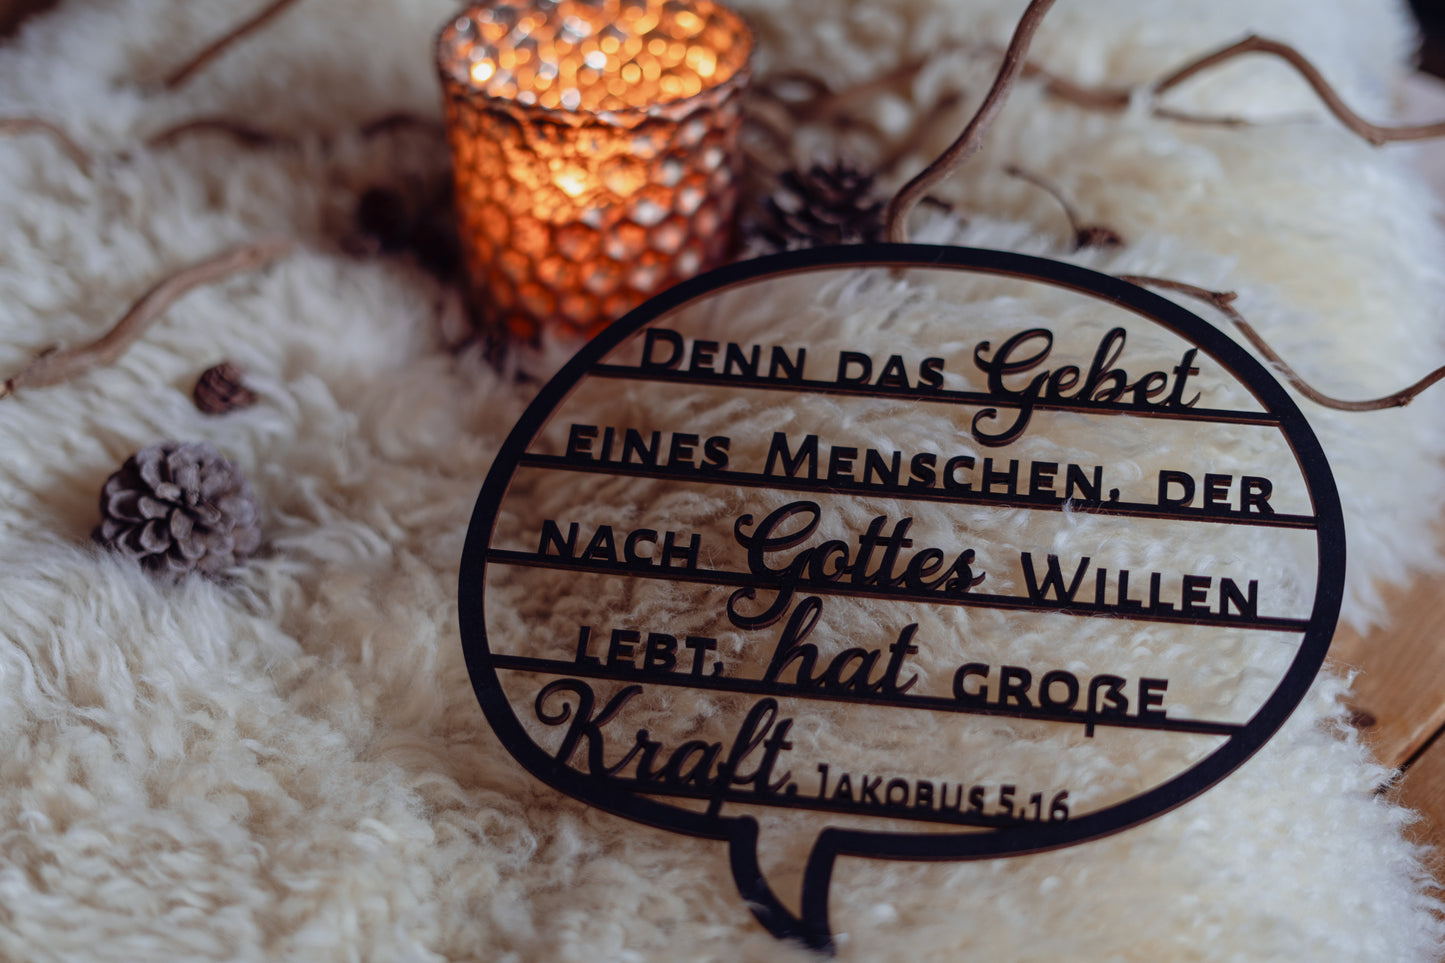 Denn das Gebet
eines Menschen, der
nach Gottes Willen
lebt, hat große
Kraft. Jakobus 5,16